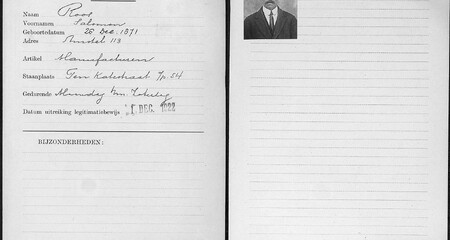 Naam Roos
Voornamen Salomon
Geboortedatum 26 Dec. 1871
Adres Amstel 113
Artikel Manufacturen
Staanplaats Ten Katestraat Jp. 54
Gedurende Maandag t/m Zaterdag
Datum uitreiking legitimatiebewijs DEC. 1922
BIJZONDERHEDEN: